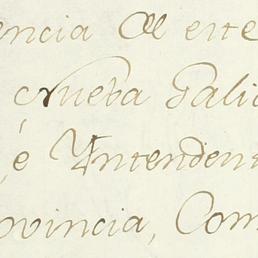 encia de este
nueba Galic
, é Yntendent
ovincia, Com